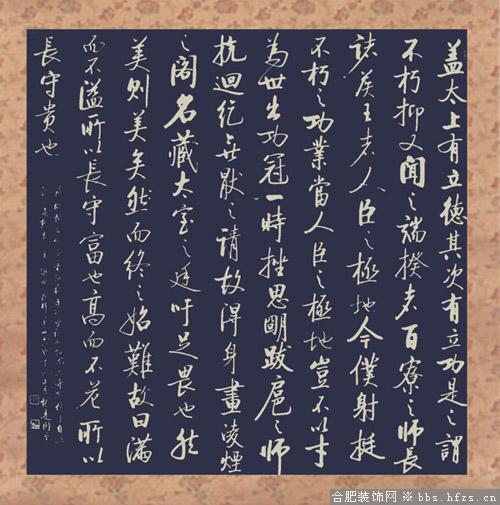 盖太上有立德其次有立功是之謂
不朽抑又聞之端揆者百寮之師長
諸侯王者人臣之極地今僕射挺
不朽之功業當人臣之極地豈不以才
為世出功冠一時挫思明跋扈之師
抗迴紇無厭之請故得身畫凌煙
之閣名藏太室之廷吁足畏也然
美則美矣然而終之始難故曰滿
而不溢所以長守富也高而不危所以
長守貴也
合肥装饰网※bbs.hfzs.cn